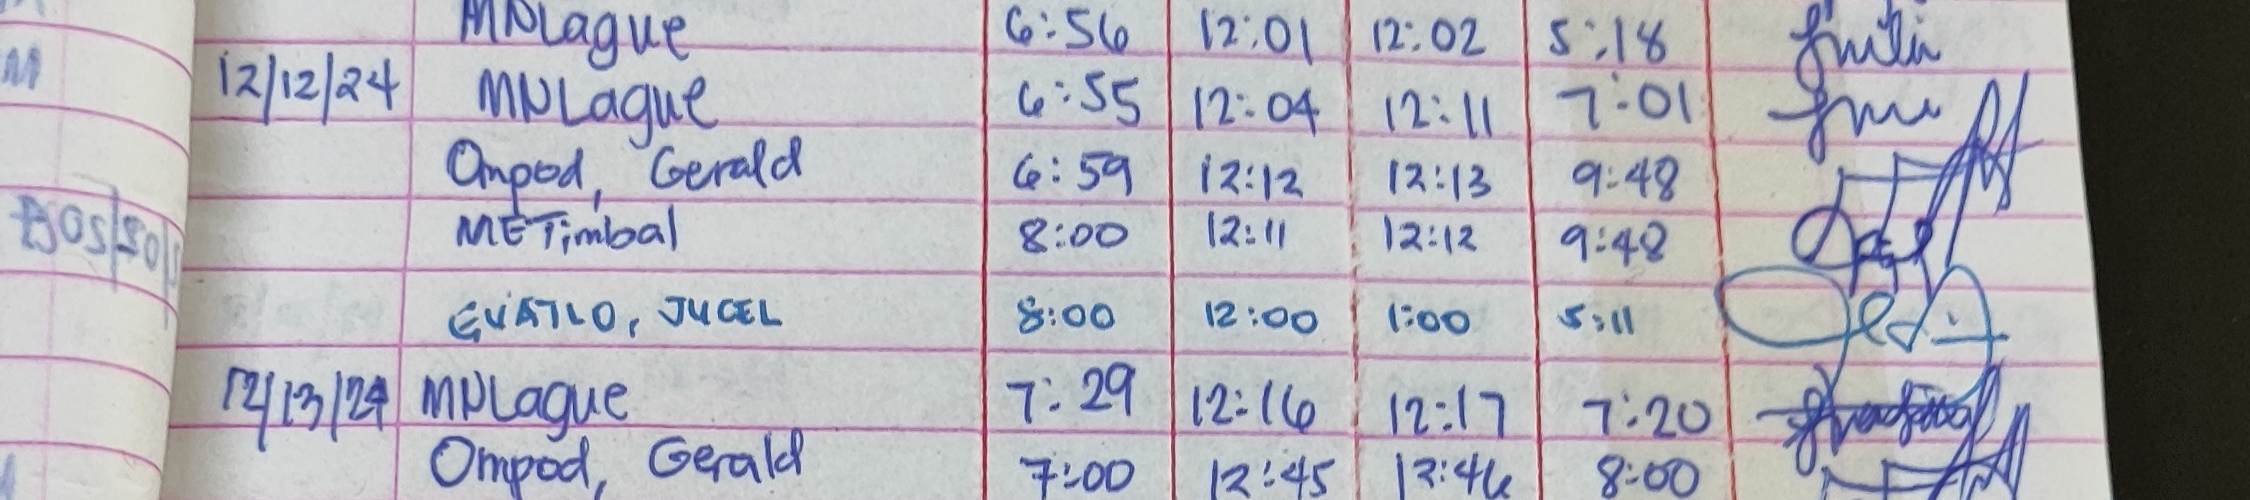 MNLague 6:56 12:01 12:02 5:18
12/12/24 MNLague 6:55 12:04 12:11 7:01
Ompod, Gerald 6:59 12:12 12:13 9:48
METimbal 8:00 12:11 12:12 9:48
JUCEL 8:00 12:00 1:00 5:11
12/13/24 MNLague 7:29 12:16 12:17 7:20
Ompod, Gerald 7:00 12:45 12:46 8:00